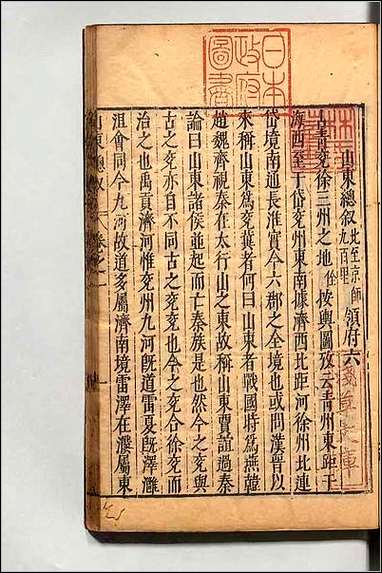 日本
政府
圖書
山東總叙 北至京師九百里 領府六
青兖徐三州之地 按輿圖攷云青州東距于
海西至于岱兖州東南據濟西北距河徐州北連
岱境南通長淮實今六郡之全境也或問漢晉以
來稱山東為兖冀者何曰山東者戰國時為燕韓
趙魏齊視秦在太行山之東故稱山東賈誼過秦
論曰山東諸侯並起而亡秦族是也然今之兖與
古之兖亦自不同古之兖兖也今之兖合徐兖而
治之也禹貢濟河惟兖州九河旣道雷夏旣澤灉
沮會同今九河故道多屬濟南境雷澤在濮屬東
山東總叙 卷之一
淺草文庫